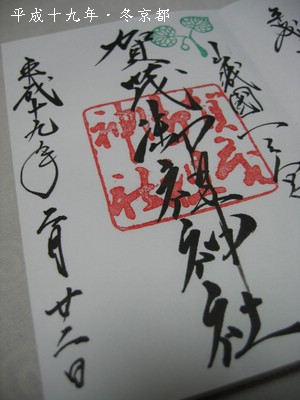 平成十九年・冬京都
山城國一之宮
賀茂御祖神社
平成十九年二月廿二日